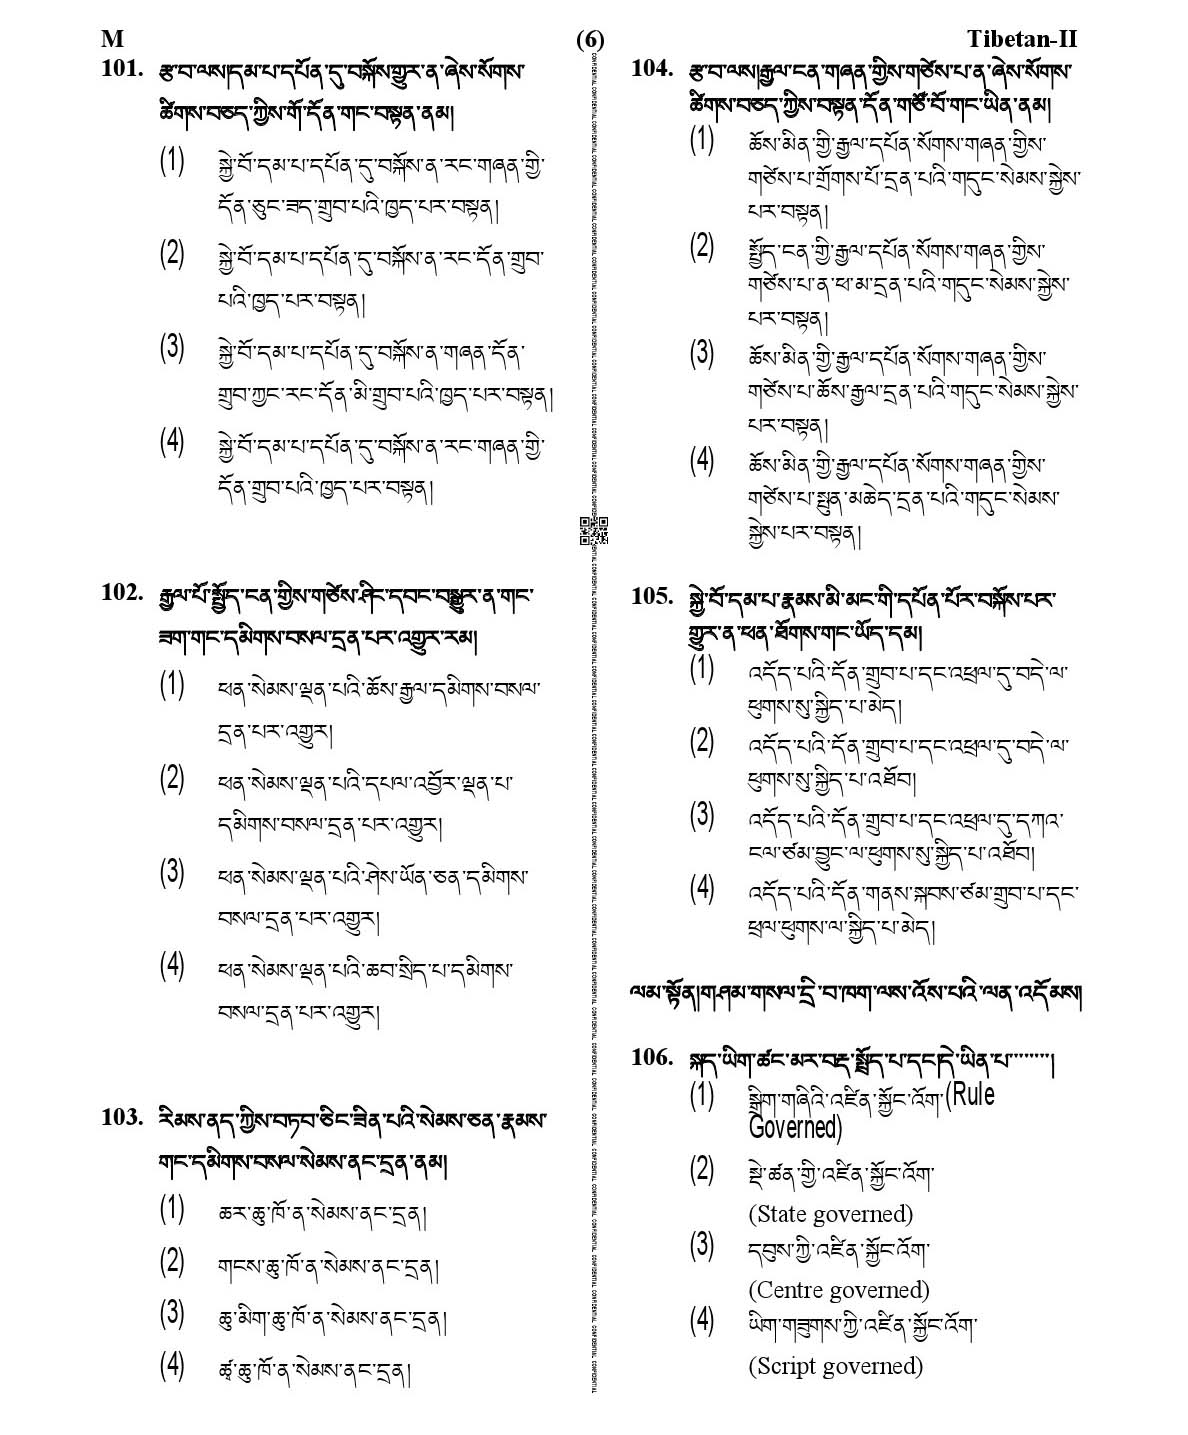 M
(6)
Tibetan-II
101. རྩ་བ་ལས།དམ་པ་དཔོན་དུ་བསྐོས་གྱུར་ན་ཞེས་སོགས་
ཚིགས་བཅད་ཀྱིས་གོ་དོན་གང་བསྟན་ནམ།
(1) སྐྱེ་བོ་དམ་པ་དཔོན་དུ་བསྐོས་ན་རང་གཞན་གྱི་
དོན་ཅུང་ཟད་གྲུབ་པའི་ཁྱད་པར་བསྟན།
(2) སྐྱེ་བོ་དམ་པ་དཔོན་དུ་བསྐོས་ན་རང་དོན་གྲུབ་
པའི་ཁྱད་པར་བསྟན།
(3) སྐྱེ་བོ་དམ་པ་དཔོན་དུ་བསྐོས་ན་གཞན་དོན་
གྲུབ་ཀྱང་རང་དོན་མི་གྲུབ་པའི་ཁྱད་པར་བསྟན།
(4) སྐྱེ་བོ་དམ་པ་དཔོན་དུ་བསྐོས་ན་རང་གཞན་གྱི་
དོན་གྲུབ་པའི་ཁྱད་པར་བསྟན།
102. རྒྱལ་པོ་སྤྱོད་ངན་གྱིས་གཙེས་ཤིང་དབང་བསྒྱུར་ན་གང་
ཟག་གང་དམིགས་བསལ་དྲན་པར་འགྱུར་རམ།
(1) ཕན་སེམས་ལྡན་པའི་ཆོས་རྒྱལ་དམིགས་བསལ་
དྲན་པར་འགྱུར།
(2) ཕན་སེམས་ལྡན་པའི་དཔལ་འབྱོར་ལྡན་པ་
དམིགས་བསལ་དྲན་པར་འགྱུར།
(3) ཕན་སེམས་ལྡན་པའི་ཤེས་ཡོན་ཅན་དམིགས་
བསལ་དྲན་པར་འགྱུར།
(4) ཕན་སེམས་ལྡན་པའི་ཆབ་སྲིད་པ་དམིགས་
བསལ་དྲན་པར་འགྱུར།
103. རིམས་ནད་ཀྱིས་བཏབ་ཅིང་ཟིན་པའི་སེམས་ཅན་རྣམས་
གང་དམིགས་བསལ་སེམས་ནང་དྲན་ནམ།
(1) ཆར་ཆུ་ཁོ་ན་སེམས་ནང་དྲན།
(2) གངས་ཆུ་ཁོ་ན་སེམས་ནང་དྲན།
(3) ཆུ་མིག་ཆུ་ཁོ་ན་སེམས་ནང་དྲན།
(4) ཚ་ཆུ་ཁོ་ན་སེམས་ནང་དྲན།
104. རྩ་བ་ལས།རྒྱལ་ངན་གཞན་གྱིས་གཙེས་པ་ན་ཞེས་སོགས་
ཚིགས་བཅད་ཀྱིས་བསྟན་དོན་གཙོ་བོ་གང་ཡིན་ནམ།
(1) ཆོས་མིན་གྱི་རྒྱལ་དཔོན་སོགས་གཞན་གྱིས་
གཙེས་པ་གྲོགས་པོ་དྲན་པའི་གདུང་སེམས་སྐྱེས་
པར་བསྟན།
(2) སྤྱོད་ངན་གྱི་རྒྱལ་དཔོན་སོགས་གཞན་གྱིས་
གཙེས་པ་ན་ཕ་མ་དྲན་པའི་གདུང་སེམས་སྐྱེས་
པར་བསྟན།
(3) ཆོས་མིན་གྱི་རྒྱལ་དཔོན་སོགས་གཞན་གྱིས་
གཙེས་པ་ཆོས་རྒྱལ་དྲན་པའི་གདུང་སེམས་སྐྱེས་
པར་བསྟན།
(4) ཆོས་མིན་གྱི་རྒྱལ་དཔོན་སོགས་གཞན་གྱིས་
གཙེས་པ་སྤུན་མཆེད་དྲན་པའི་གདུང་སེམས་
སྐྱེས་པར་བསྟན།
105. སྐྱེ་བོ་དམ་པ་རྣམས་མི་མང་གི་དཔོན་པོར་བསྐོས་པར་
གྱུར་ན་ཕན་ཐོགས་གང་ཡོད་དམ།
(1) འདོད་པའི་དོན་གྲུབ་པ་དང་འཕྲལ་དུ་བདེ་ལ་
ཕུགས་སུ་སྐྱིད་པ་མེད།
(2) འདོད་པའི་དོན་གྲུབ་པ་དང་འཕྲལ་དུ་བདེ་ལ་
ཕུགས་སུ་སྐྱིད་པ་འཐོབ།
(3) འདོད་པའི་དོན་གྲུབ་པ་དང་འཕྲལ་དུ་དཀའ་
ངལ་ཙམ་བྱུང་ལ་ཕུགས་སུ་སྐྱིད་པ་འཐོབ།
(4) འདོད་པའི་དོན་གནས་སྐབས་ཙམ་གྲུབ་པ་དང་
ཕྲལ་ཕུགས་ལ་སྐྱིད་པ་མེད།
ལམ་སྟོན།གཤམ་གསལ་དྲི་བ་ཁག་ལས་འོས་པའི་ལན་འདོམས།
106. སྐད་ཡིག་ཚང་མར་བརྡ་སྤྲོད་པ་དང།དེ་ཡིན་པ་........།
(1) སྒྲིག་གཞིའི་འཛིན་སྐྱོང་འོག་(Rule
Governed)
(2) སྡེ་ཚན་གྱི་འཛིན་སྐྱོང་འོག་
(State governed)
(3) དབུས་ཀྱི་འཛིན་སྐྱོང་འོག་
(Centre governed)
(4) ཡིག་གཟུགས་ཀྱི་འཛིན་སྐྱོང་འོག་
(Script governed)